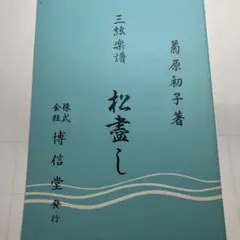 菊原初子著
三絃楽譜
松盡し
株式会社 博信堂 発行